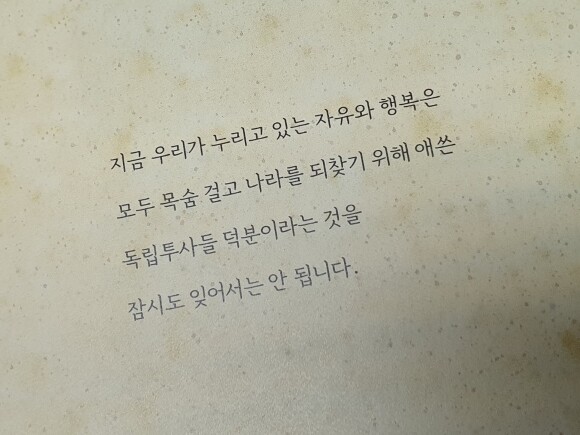 지금 우리가 누리고 있는 자유와 행복은
모두 목숨 걸고 나라를 되찾기 위해 애쓴
독립투사들 덕분이라는 것을
잠시도 잊어서는 안 됩니다.